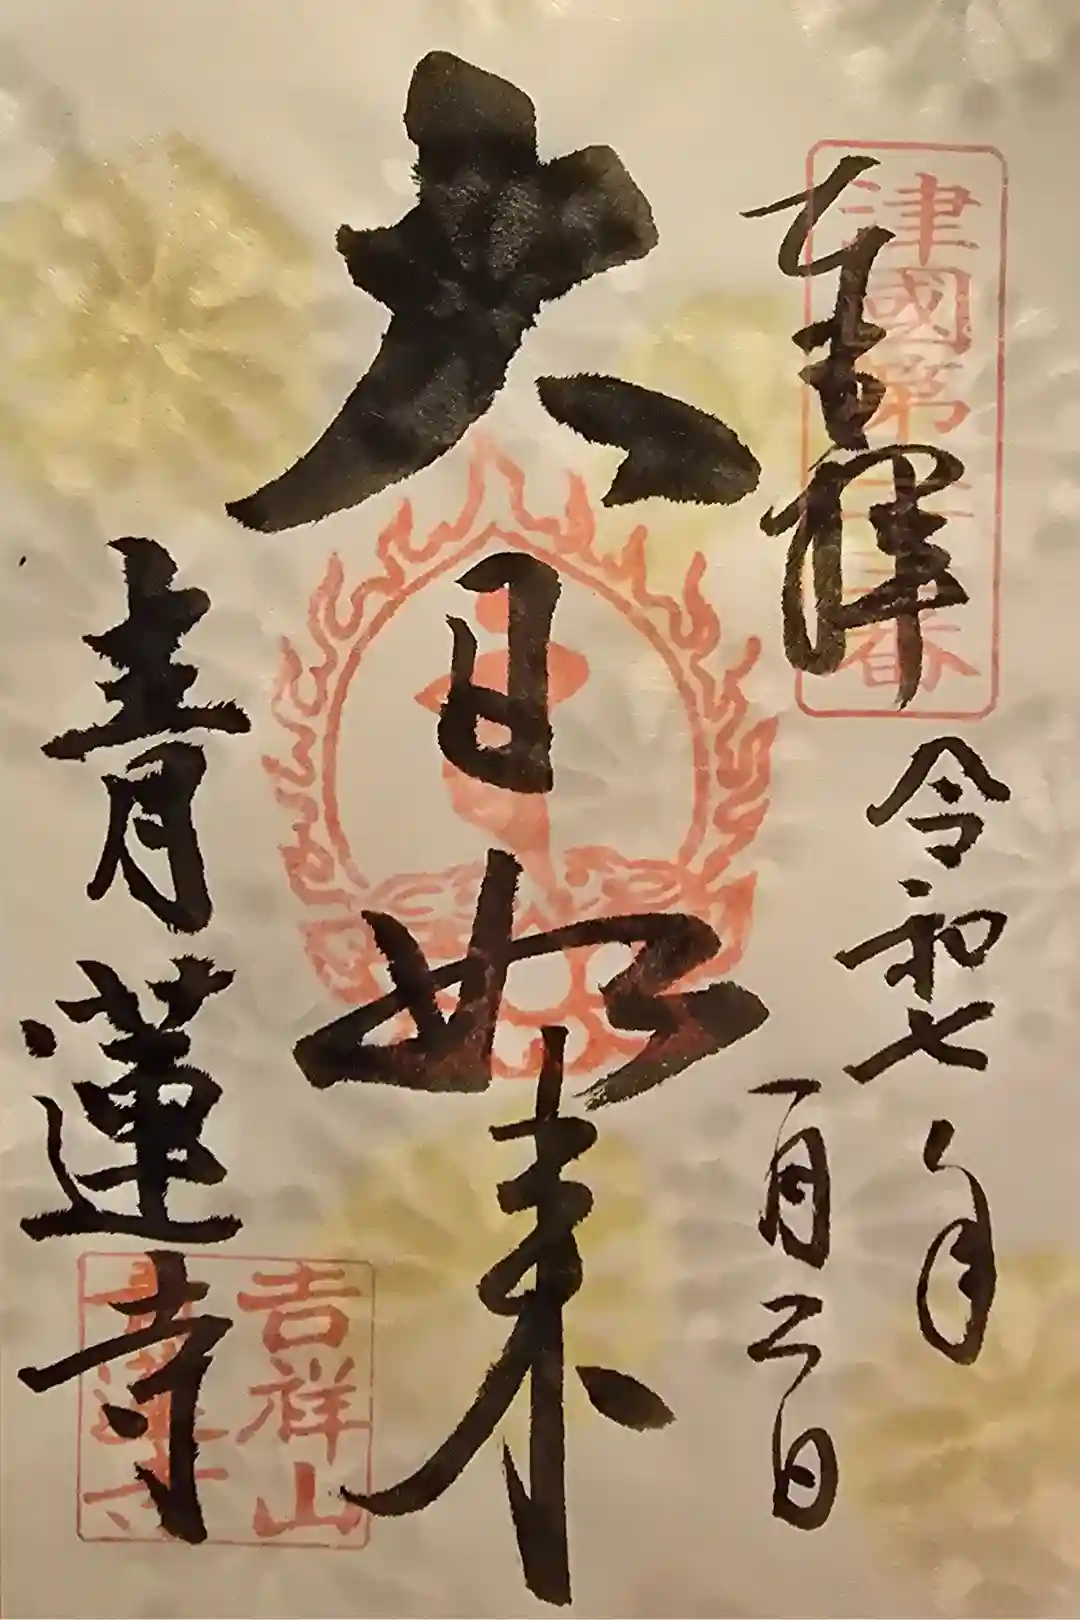 奉拝
津國第十三番
令和七年
一月二日
大日如来
青蓮寺
吉祥山
青蓮寺